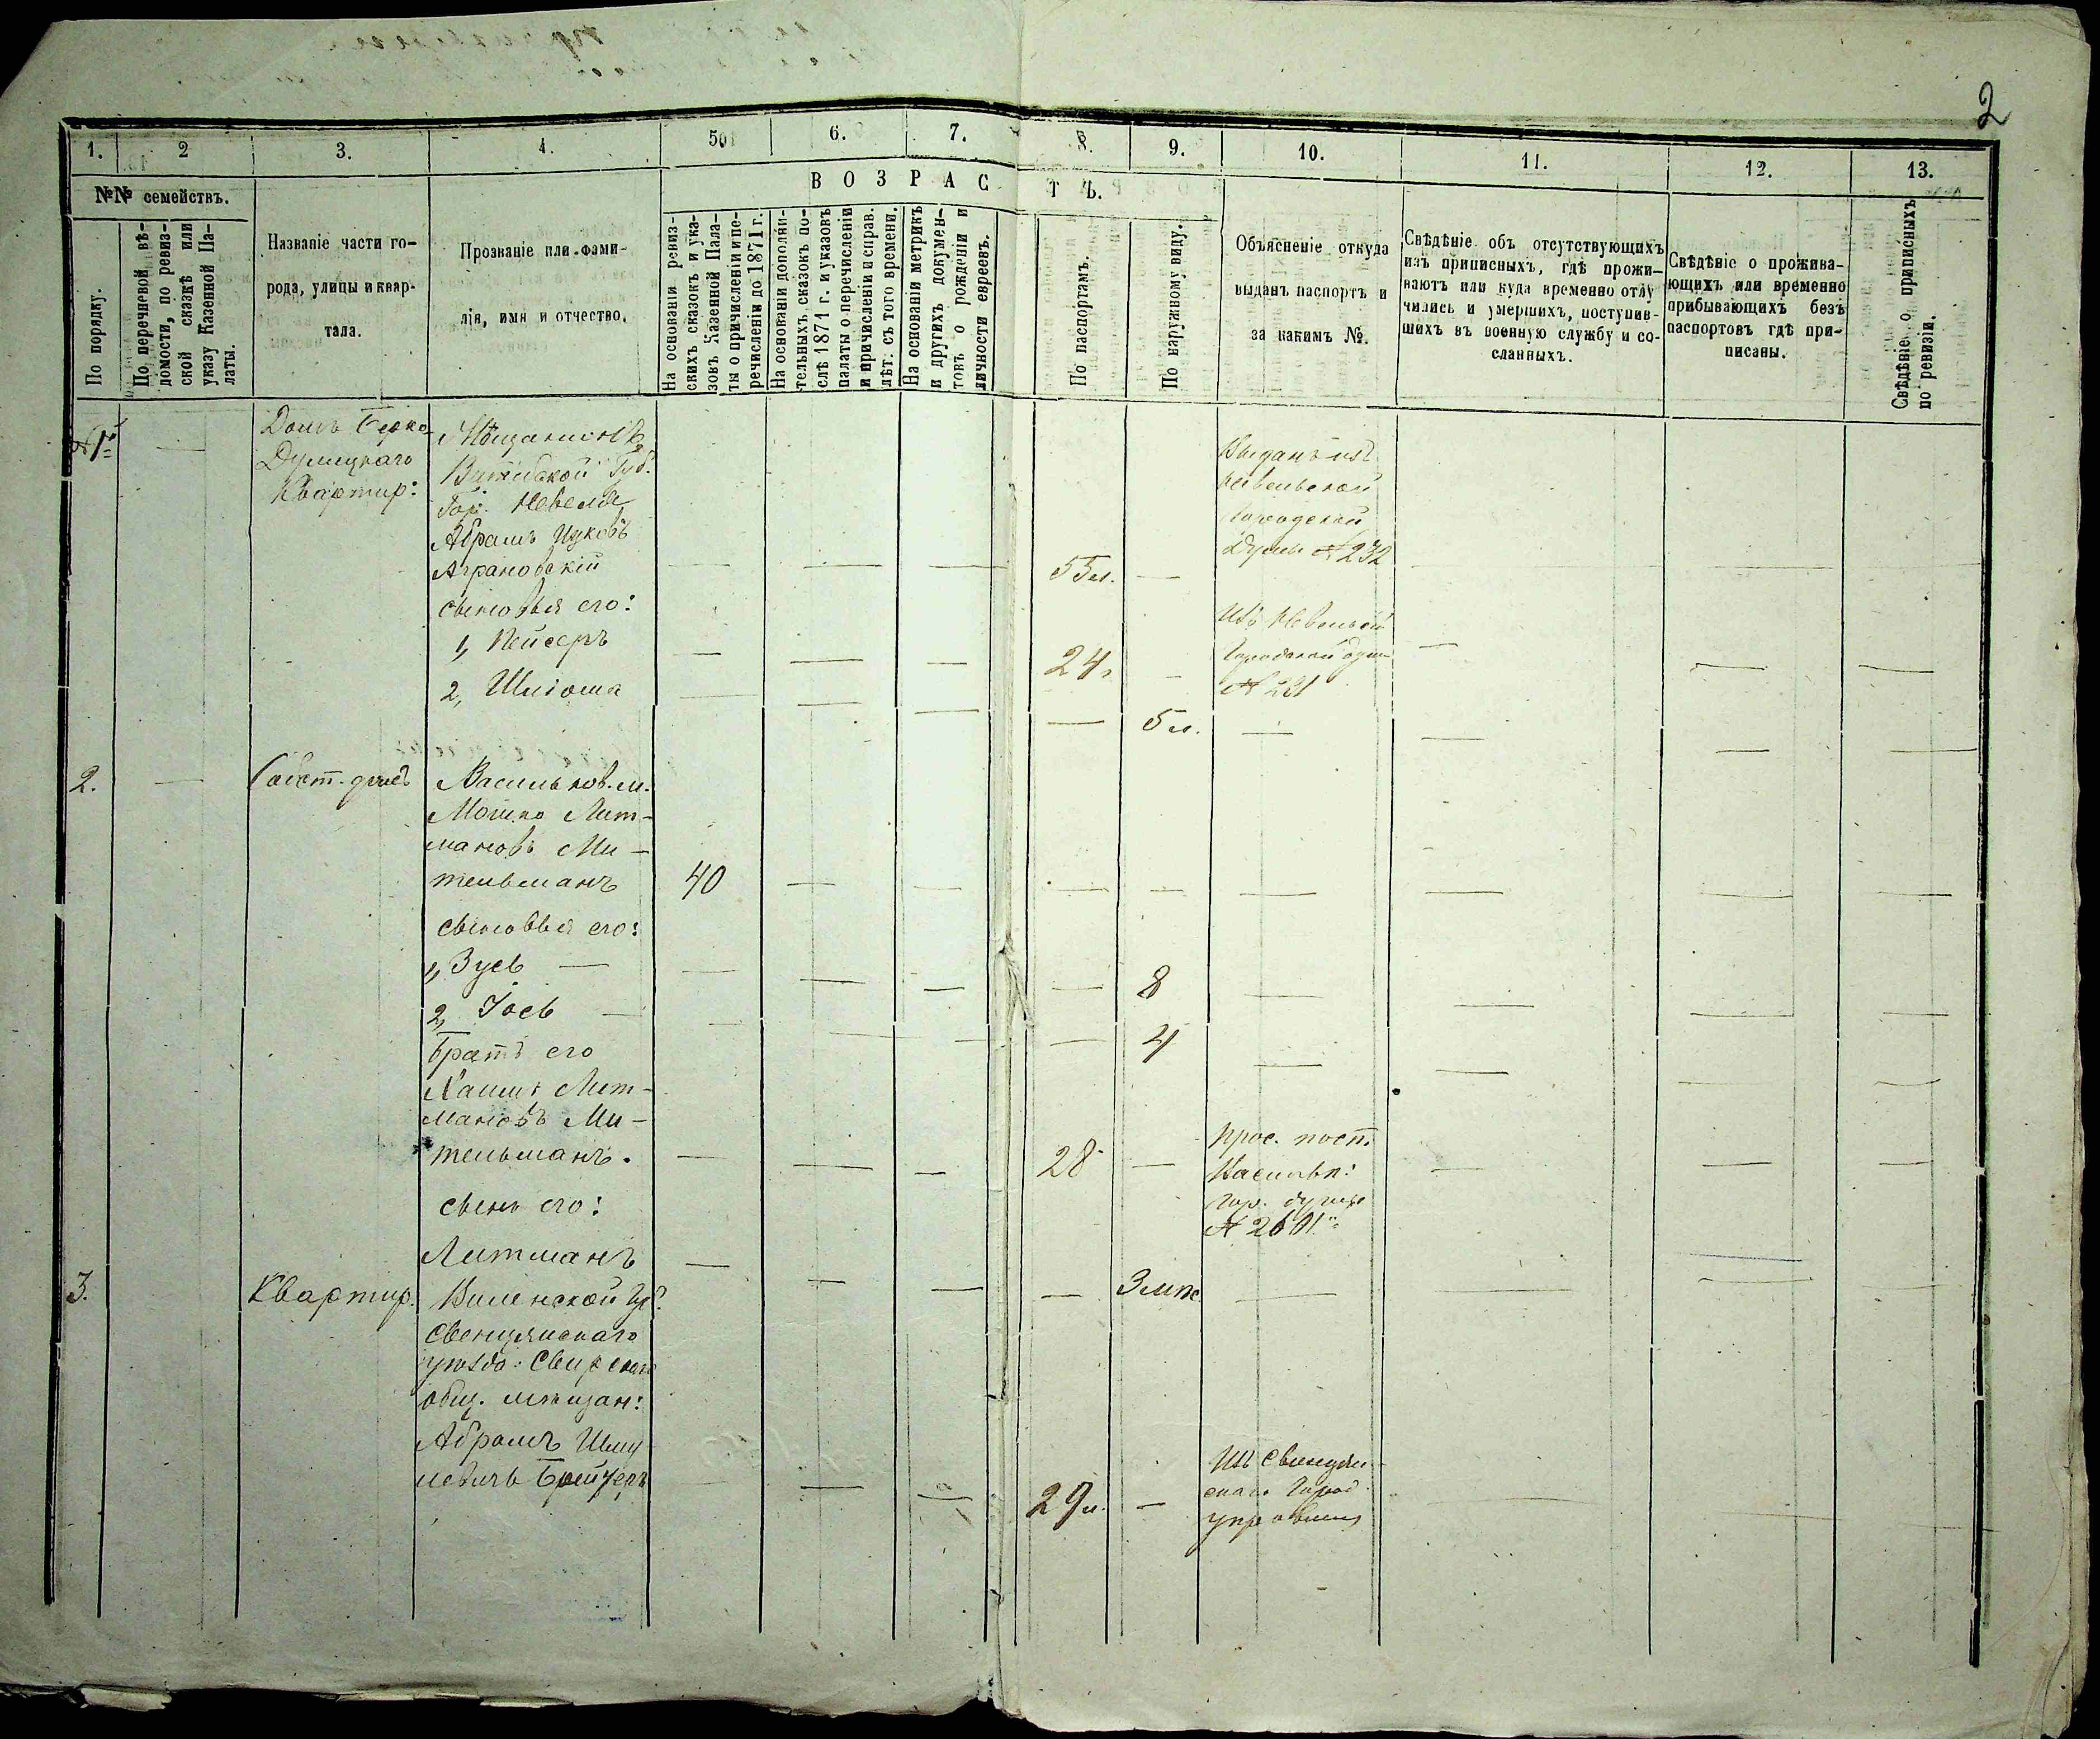 2
1. 2 3. 4. 5. 6. 7. 8. 9. 10. 11. 12. 13.
№№ семействъ.
По порядку.
По перечневой вѣ-
домости, по ревиз-
ской сказкѣ или
указу Казенной Па-
латы.
Названіе части го-
рода, улицы и квар-
тала.
Прозваніе или фами-
лія, имя и отчество.
ВОЗРАСТЪ.
На основаніи ревиз-
скихъ сказокъ и ука-
зовъ Казенной Пала-
ты о причисленіи и пе-
речисленіи до 1871 г.
На основаніи дополни-
тельныхъ сказокъ по-
слѣ 1871 г. и указовъ
палаты о перечисленіи
и причисленіи и справ.
лѣт. съ того времени.
На основаніи метрикъ
и другихъ докумен-
товъ о рожденіи и
личности евреевъ.
По паспортамъ.
По наружному виду.
Объясненіе откуда
выданъ паспортъ и
за какимъ №.
Свѣдѣніе объ отсутствующихъ
изъ приписныхъ, гдѣ прожи-
ваютъ или куда временно отлу
чились и умершихъ, поступив-
шихъ въ военную службу и со-
сланныхъ.
Свѣдѣніе о прожива-
ющихъ или временно
прибывающихъ безъ
паспортовъ гдѣ при-
писаны.
Свѣдѣніе о приписныхъ
по ревизіи.
№1й
Домъ Берко
Квартир:
Мѣщанинъ
Витебской Губ.
Гор. Невеля
Абрамъ Ицковъ
Аграновскій
55 л.
Выданъ изъ
Невельской
Городской
Думы № 232
сыновья его:
1, Лейсеръ
24
Изъ Невельск
Городской дум
№ 231
2,
5 л.
2.
Собст. домъ
Васильков. м.
Мошко Лит-
мановъ Ми-
тельманъ
40
сыновья его:
1, Зусь
8
2, Іось
4
Братъ его
Хаимъ Лит-
мановъ Ми-
тельманъ.
28
прос. посп.
Васильк:
гор. думы
№ 2601
сынъ его:
Литманъ
3 мѣс.
3.
Квартир.
Виленской Губ.
Свенцянскаго
уѣзда: Свирскаго
общ. мѣщан:
Абрамъ Шму
левичъ
29 л.
Изъ Свенцян-
скаго Город
управленія